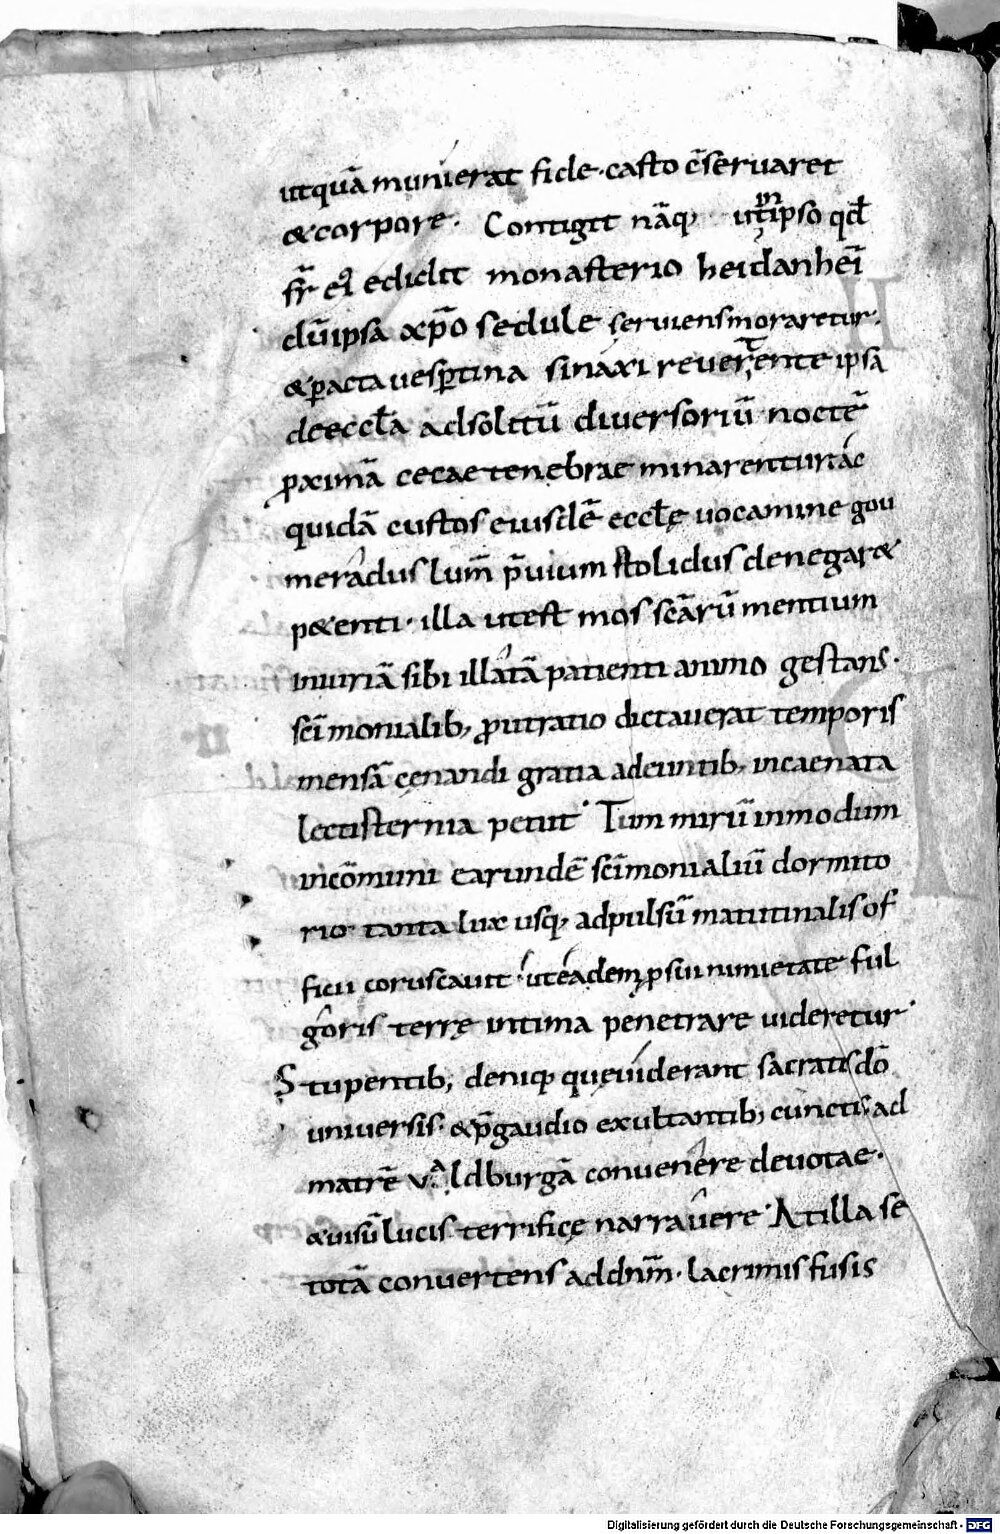 utquā munierat fide· casto c̄servaret
&corpore· Contigit nāq; ut in ipso qđ
fr̄ ei᷒ edidit monasterio heidanheī
dūipsa xp̄o sedule serviens moraretur·
&pacta vespertina sinaxi reverente ipsā
deeccl̄a adsolitū diversoriū noctē
proximā cecae tenebrae minarentur ac
quidā custos eiusdē eccl̄ę vocamine gou
meradus lum̄ p̄vium stolidus denegar&
p&enti· illa utest mos scārū mentium
iniuriā sibi illatā patienti animo gestans·
sc̄imonialib; prout ratio dictaverat temporis
mensā cenandi gratia adeuntib; incaenata
lectisternia petiit· Tum mirū inmodum
incōmuni earundē sc̄imonialiū dormito
rio tanta lux usq; adpulsū matutinalis of
ficii coruscavit· uteadem p sui nimietate ful
goris terrę intima penetrare videretur·
Stupentib; deniq; que viderant sacratis dō
universis· &p̄gaudio exultantib; cunctis ad
matrē vvaldburgā convenere devotae·
&visū lucis terrificę narravere· At illa se
totā convertens addn̄m· lacrimis fusis
Digitalisierung gefördert durch die Deutsche Forschungsgemeinschaft - DFG